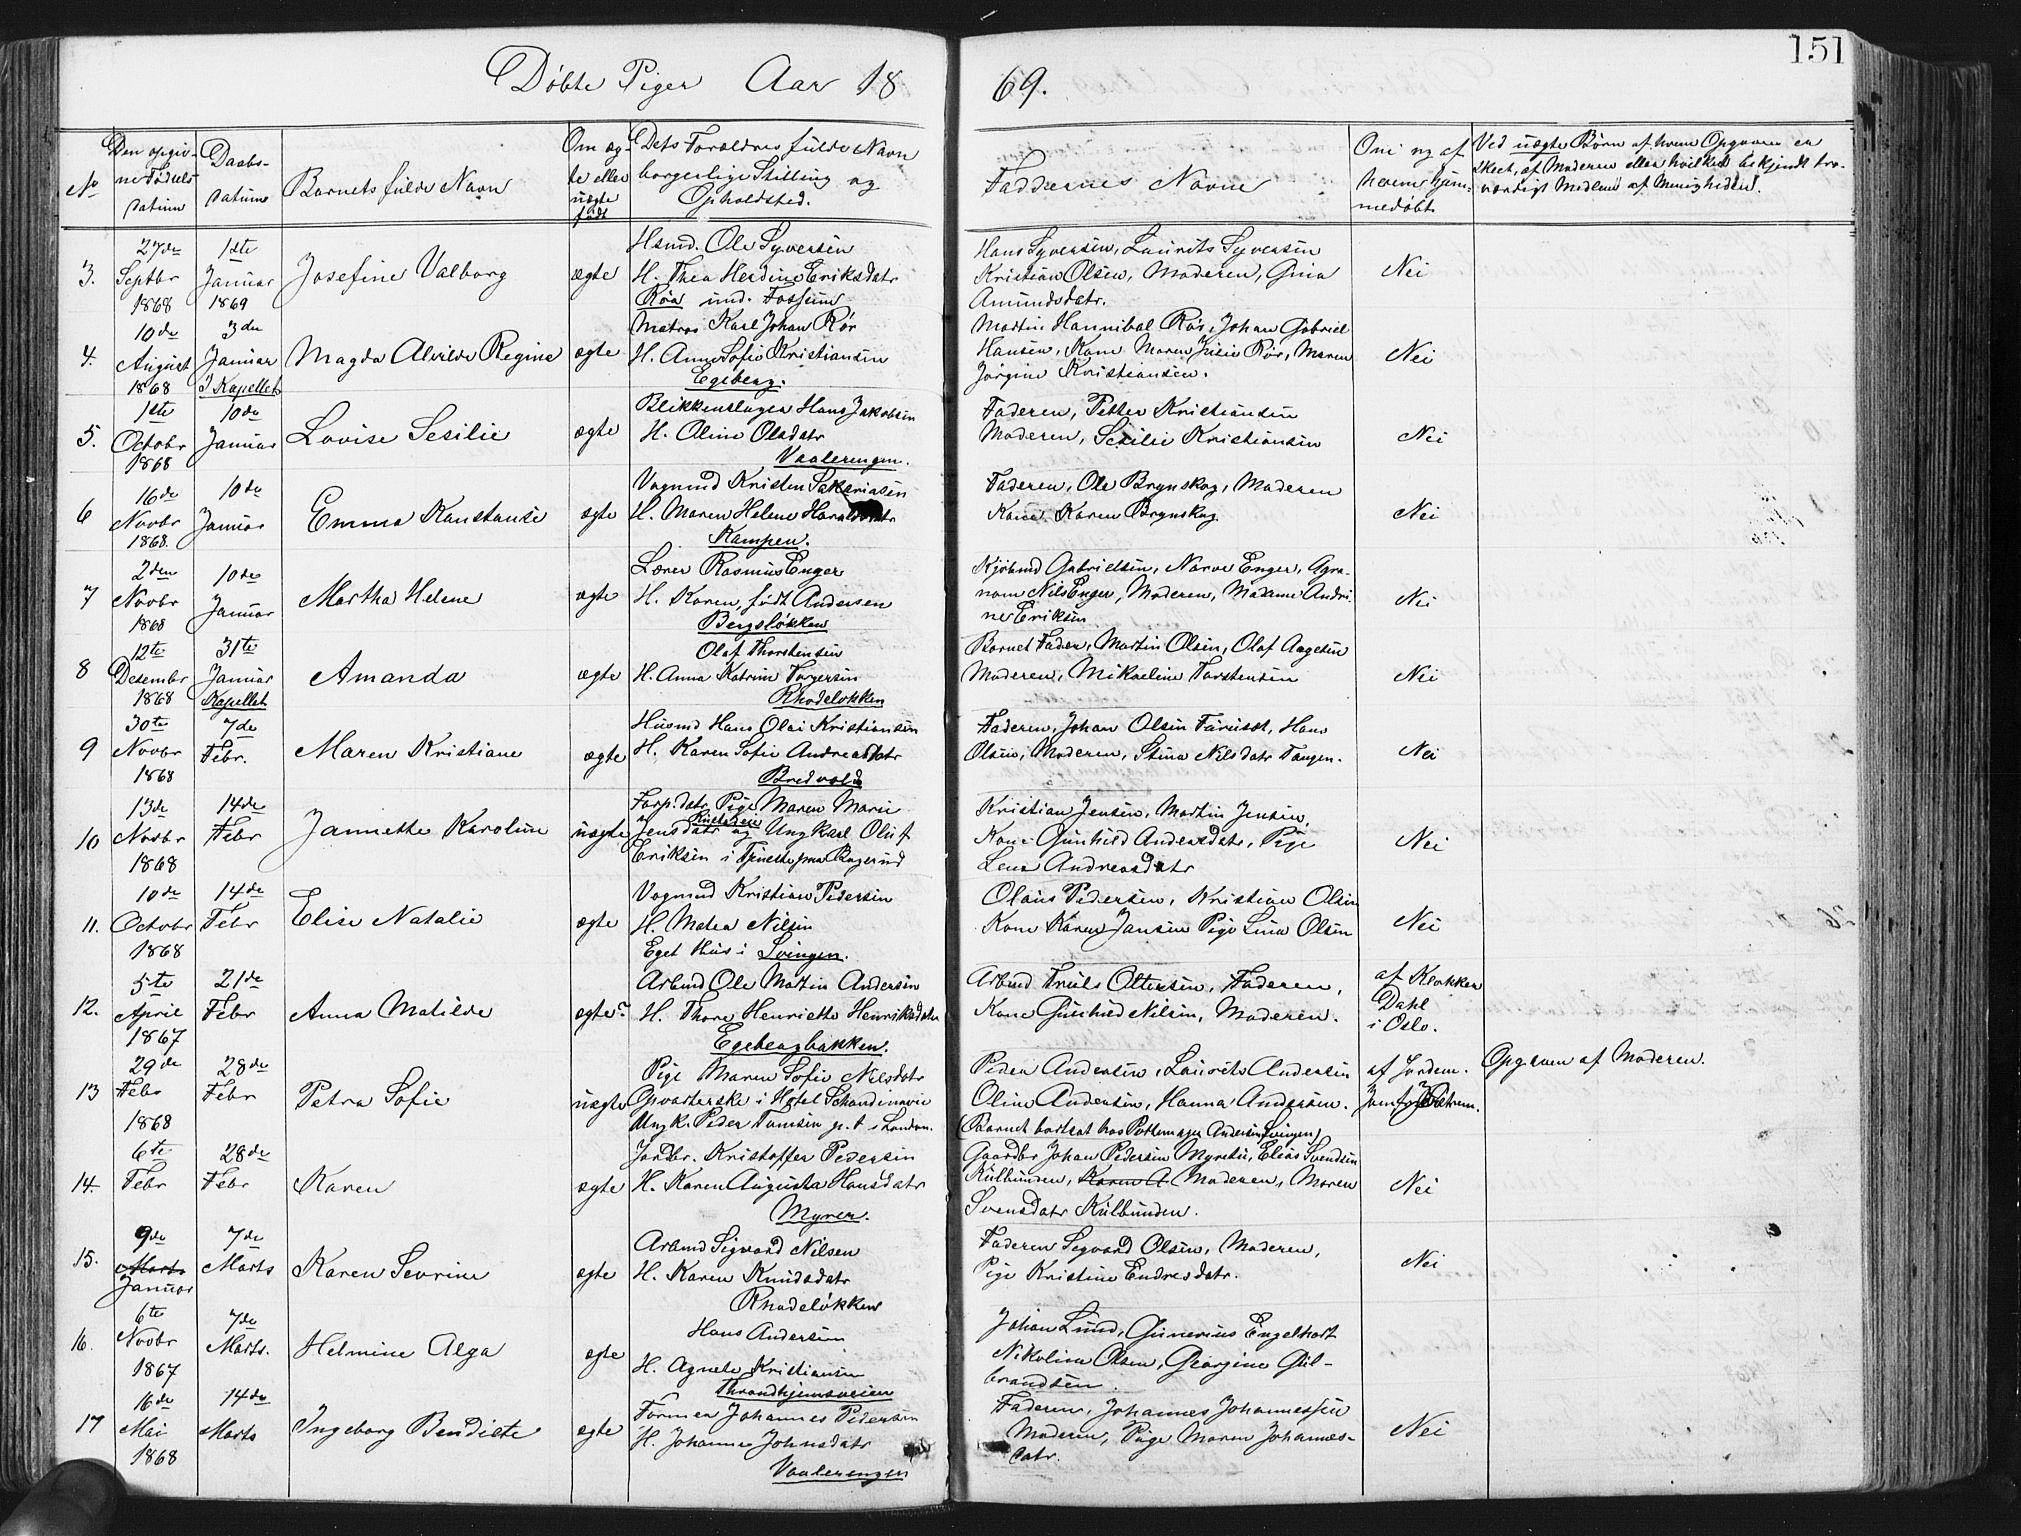 151
Døbte Piger Aar 18 69.
No
Den opgiv-
ne Fødsels
datum
Daabs-
datum
Barnets fulde Navn
Om æg-
te eller
uægte
født
Dets Forældres fulde Navn
borgerlige Stilling og
Opholdsted.
Faddernes Navne
Om og af
hvem hjem-
medøbt
Ved uægte Børn af hvem Opgaven er
skeet, af Moderen eller hvilket bekjendt tro-
værdigt Medlem af Menigheden.
3.
27de
Septbr
1868
1ste
Januar
1869
Josefine Valborg
ægte
Hsmd. Ole Syversen
H. Thea Herdine Eriksdatr
Røa und. Fossum
Hans Syversen, Laurits Syversen
Kristian Olsen, Moderen, Gina
Amundsdatr.
Nei
4.
10de
August
1868
3die
Januar
I Kapellet
Magda Alvilde Regine
ægte
Matros Karl Johan Rør
H. Anne Sofie Kristiansen
Egeberg.
Martin Hannibal Rør, Johan Gabriel
Hansen, Kone Maren Julie Rør, Maren
Jørgine Kristiansen.
Nei
5.
1ste
Octobr
1868
10de
Januar
Lovise Sesilie
ægte
Blikkenslager Hans Jakobsen
H. Oline Olsdatr
Vaalerengen.
Faderen, Petter Kristiansen
Moderen, Sesilie Kristiansen
Nei
6
16de
Novbr
1868.
10de
Januar
Emma Konstanse
ægte
Vognmd Kristen Sakariasen
H. Maren Helene Haraldsdatr
Kampen.
Faderen, Ole Brynskog, Moderen
Kone Karen Brynskog.
Nei
7
2den
Novbr
1868
10de
Januar
Martha Helene
ægte
Lærer Rasmus Enger
H. Karen, født Andersen
Bergsløkken
Kjøbmd Gabrielsen, Narve Enger, Agro-
nom Nils Enger, Moderen, Madame Andri-
ne Eriksen
Nei
8
12te
Desembr
1868
31te
Januar
Kapellet
Amanda
ægte
Olaf Thorstensen
H. Anna Katrine Torgersen
Rhodeløkken
Barnet Fader, Martin Olsen, Olaf Aagesen
Moderen, Mikaeline Torstensen
Nei
9
30te
Novbr
1868
7de
Febr.
Maren Kristiane
ægte
Husmd Hans Olai Kristiansen
H. Karen Sofie Andreasdatr
Bredvold
Faderen, Johan Olsen Faruset, Hans
Olsen, Moderen, Stina Nilsdatr Tangen.
Nei
10
13de
Novbr
1868
14de
Febr
Jannette Karoline
uægte
Forp.datr. Pige Maren Marie
Jensdatr og Ungkarl Oluf
Eriksen i Tjeneste paa Bogerud
Kristian Jensen, Martin Jensen,
Kone Gunhild Andersdatr, Pige
Lena Andreasdatr
Nei
11.
10de
Octobr
1868
14de
Febr
Elise Natalie
ægte
Vognmd Kristian Pedersen
H. Matea Nilsen
Eget Hus i Svingen.
Olaus Pedersen, Kristian Olsen
Kone Karen Jansen Pige Lina Olsen
Nei
12.
5te
April
1867
21de
Febr
Anna Matilde
ægte
Arbmd Ole Martin Andersen
H. Thora Henriette Henriksdatr
Egebergbakken.
Arbmd Truls Ottersen, Faderen,
Kone Gunhild Nilsen, Moderen.
af Klokker
Dahl
i Oslo.
13
29de
Febr
1868
28de
Febr
Petra Sofie
uægte
Pige Maren Sofie Nilsdatr
Opvarterske i Hotel Skandinavie
Ungk. Peder Tomsen
Peder Andersen, Laurits Andersen
Oline Andersen, Hanna Andersen.
(Barnet bortsat hos Pottemager Andersen Svingen)
af Jordem.
Jomfru
Opgaven af Moderen.
14.
6te
Febr
28de
Febr
Karen
ægte
Jordbr. Kristoffer Pedersen
H. Karen Augusta Hansdatr
Myrer.
Gaardbr Johan Pedersen Myrer, Elias Svendsen
Kulbunden, Karen A. Moderen, Maren
Svensdatr Kulbunden.
Nei
15.
9de
Marts
Januar
7de
Marts
Karen Sevrine
ægte
Arbmd Sigvard Nilsen
H. Karen Knudsdatr
Rhodeløkken
Faderen Segvard Olsen, Moderen,
Pige Kristine Endresdatr.
Nei
16.
6te
Novbr
1867
7de
Marts.
Helmine Alga
ægte
Hans Andersen
H. Agnete Kristiansen
Throndhjemsveien
Johan Lund, Gunerius Engelhart
Nikoline Olsen, Georgine Gul-
brandsen.
17
16de
Mai
1868
14de
Marts
Ingeborg Bendicte
ægte
Former Johannes Pedersen
H. Johanne Johnsdatr
Vaalerengen
Faderen, Johannes Johannessen
Moderen, Pige Maren Johannes-
datr.
Nei